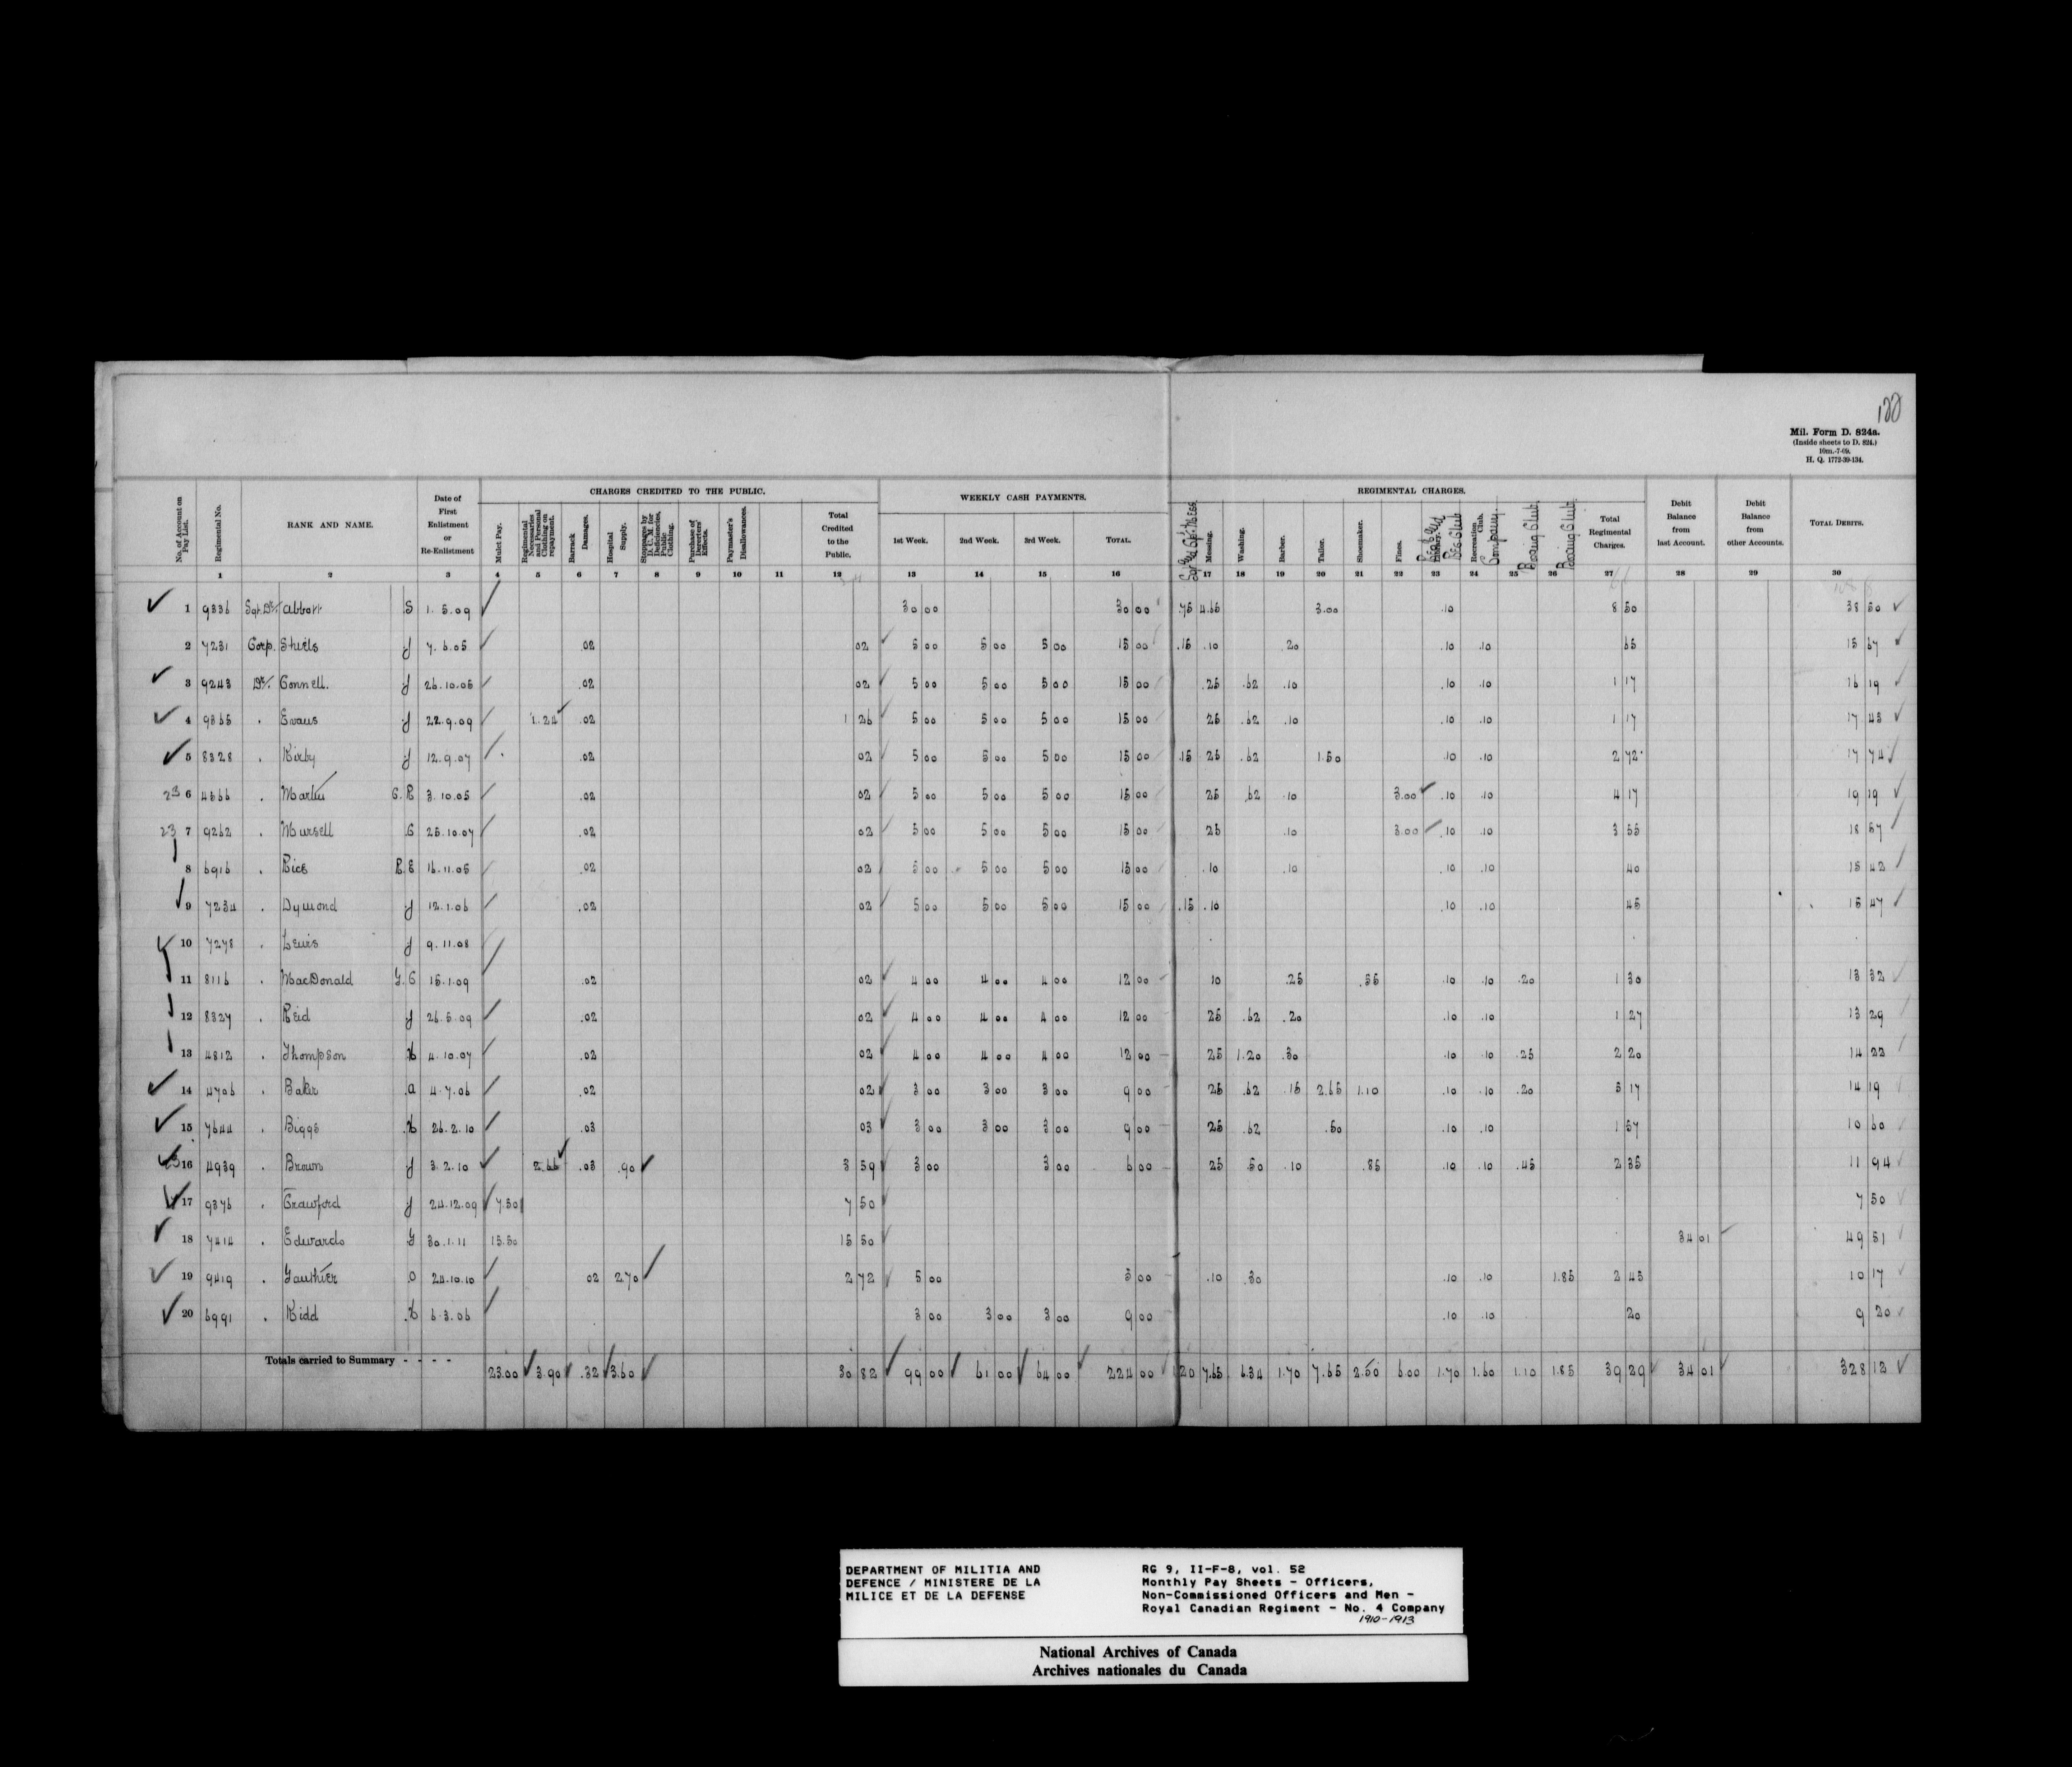 122
Mil. Form D. 824a.
(Inside sheets to D. 824.)
10m.-7-09.
H. Q. 1772-39-134.
CHARGES CREDITED TO THE PUBLIC. WEEKLY CASH PAYMENTS. REGIMENTAL CHARGES.
No. of Account on Pay List. Regimental No. RANK AND NAME. Date of First Enlistment or Re-Enlistment Mulct Pay. Regimental Necessaries and Personal Clothing on repayment. Barrack Damages. Hospital Supply. Stoppages by D.C.M. for Deficiencies, Public Clothing. Purchase of Deserters' Effects. Paymaster's Disallowances. Total Credited to the Public. 1st Week. 2nd Week. 3rd Week. TOTAL. Messing. Washing. Barber. Tailor. Shoemaker. Fines. Library. Recreation Club. Company. Boxing Club. Total Regimental Charges. Debit Balance from last Account. Debit Balance from other Accounts. TOTAL DEBITS.
1 2 3 4 5 6 7 8 9 10 11 12 13 14 15 16 17 18 19 20 21 22 23 24 25 26 27 28 29 30
1 9336 Sgt. Dr. Abbott S 1.5.09 30 00 30 00 .75 4.65 3.00 .10 8 50 38 50
2 7231 Corp. Shiels J 7.6.05 .02 02 5 00 5 00 5 00 15 00 .15 .10 .20 .10 .10 65 15 67
3 9243 Connell. J 26.10.05 .02 02 5 00 5 00 5 00 15 00 .25 .62 .10 .10 .10 1 17 16 19
4 9365 . Evans J 22.9.09 1.24 .02 1 26 5 00 5 00 5 00 15 00 25 .62 .10 .10 .10 1 17 17 43
5 8328 . Kirby J 12.9.07 .02 02 5 00 5 00 5 00 15 00 .15 25 .62 1.50 .10 .10 2 72 17 74
23 6 4366 . Martin G. R 3.10.05 .02 02 5 00 5 00 5 00 15 00 25 .62 .10 3.00 .10 .10 4 17 19 19
23 7 9262 . Mursell G 25.10.07 .02 02 5 00 5 00 5 00 15 00 25 .10 3.00 .10 .10 3 55 18 57
8 6916 . Rice R. E 16.11.05 .02 02 5 00 5 00 5 00 15 00 .10 .10 .10 .10 40 15 42
9 7234 . Dymond J 12.1.06 .02 02 5 00 5 00 5 00 15 00 .15 .10 .10 .10 45 15 47
10 7278 . Lewis J 9.11.08
11 8116 . MacDonald J. C 15.1.09 .02 02 4 00 4 00 4 00 12 00 10 .25 .55 .10 .10 .20 1 30 13 32
12 8327 . Reid J 26.5.09 .02 02 4 00 4 00 4 00 12 00 25 .62 .20 .10 .10 1 27 13 29
13 4812 . Thompson H 4.10.07 .02 02 4 00 4 00 4 00 12 00 25 1.20 .30 .10 .10 .25 2 20 14 22
14 4706 . Baker A 4.7.06 .02 02 3 00 3 00 3 00 9 00 25 .62 .15 2.65 1.10 .10 .10 .20 5 17 14 19
15 7644 . Biggs H 26.2.10 .03 03 3 00 3 00 3 00 9 00 25 .62 .50 .10 .10 1 57 10 60
16 4939 . Brown J 3.2.10 2.66 .03 .90 3 59 3 00 3 00 6 00 25 50 .10 .85 .10 .10 .45 2 35 11 94
17 9376 . Crawford J 24.12.09 7.50 7 50 7 50
18 7414 . Edwards G 30.1.11 15.50 15 50 34 01 49 51
19 9419 . Gauthier O 24.10.10 02 2.70 2 72 5 00 5 00 .10 .30 .10 .10 1.85 2 45 10 17
20 6991 . Kidd H 6.3.06 3 00 3 00 3 00 9 00 .10 .10 20 9 20
Totals carried to Summary - - - - 23.00 3.90 .32 3.60 30 82 99 00 61 00 64 00 224 00 1 20 7.65 6.34 1.70 7.65 2.50 6.00 1.70 1.60 1.10 1.85 39 29 34 01 328 12
DEPARTMENT OF MILITIA AND
DEFENCE / MINISTERE DE LA
MILICE ET DE LA DEFENSE
RG 9, II-F-8, vol. 52
Monthly Pay Sheets - Officers,
Non-Commissioned Officers and Men -
Royal Canadian Regiment - No. 4 Company
1910-1913
National Archives of Canada
Archives nationales du Canada